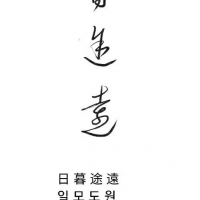 途遠
日暮途遠
일모도원